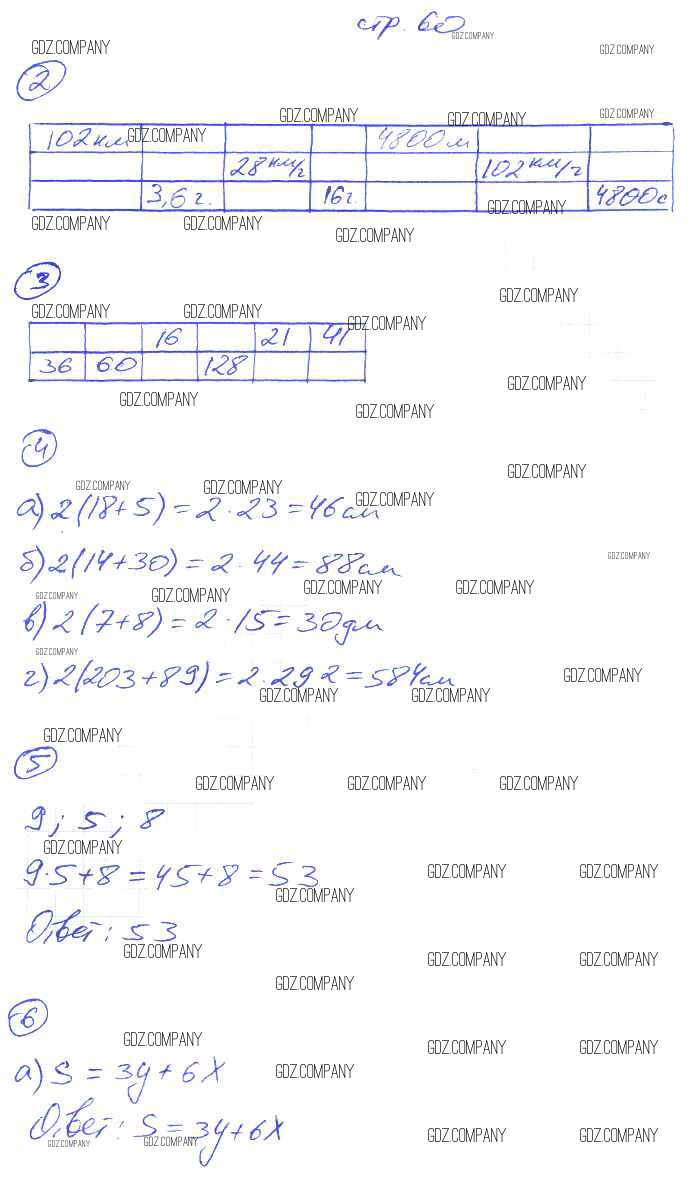 стр. 60
GDZ.COMPANY GDZ.COMPANY GDZ.COMPANY
2
GDZ.COMPANY GDZ.COMPANY GDZ.COMPANY
102км GDZ.COMPANY 4800м
28км/г 102км/г
3,6г. 16г. GDZ.COMPANY 4800с
GDZ.COMPANY GDZ.COMPANY GDZ.COMPANY
3
GDZ.COMPANY
GDZ.COMPANY GDZ.COMPANY GDZ.COMPANY
16 21 41
36 60 128
GDZ.COMPANY
GDZ.COMPANY GDZ.COMPANY
4
GDZ.COMPANY
GDZ.COMPANY GDZ.COMPANY GDZ.COMPANY
а) 2(18+5) = 2·23 = 46см
GDZ.COMPANY
б) 2(14+30) = 2·44 = 88см
GDZ.COMPANY GDZ.COMPANY GDZ.COMPANY GDZ.COMPANY
в) 2(7+8) = 2·15 = 30дм
GDZ.COMPANY
г) 2(203+89) = 2·292 = 584см
GDZ.COMPANY GDZ.COMPANY GDZ.COMPANY
GDZ.COMPANY
5
GDZ.COMPANY GDZ.COMPANY GDZ.COMPANY
9; 5; 8
GDZ.COMPANY
9·5+8 = 45+8 = 53
GDZ.COMPANY GDZ.COMPANY GDZ.COMPANY
Ответ: 53
GDZ.COMPANY GDZ.COMPANY GDZ.COMPANY
GDZ.COMPANY
6
GDZ.COMPANY GDZ.COMPANY GDZ.COMPANY
а) S = 3y + 6X
GDZ.COMPANY
Ответ: S = 3y+6X
GDZ.COMPANY GDZ.COMPANY GDZ.COMPANY GDZ.COMPANY